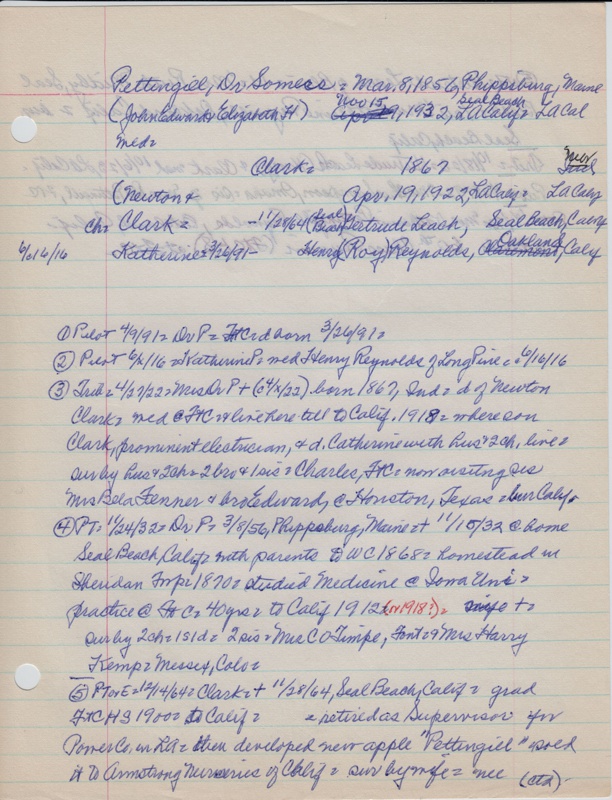 Pettingill, Dr Somers = Mar, 8, 1856, Phippsburg, Maine
(John Edward & Elizabeth H) Nov 15, 1932, Seal Beach, LA Calif = LA Cal
med =
Clark = 1867 Ind
(Newton & Apr, 19, 1922, LA Calif = LA Calif
ch = Clark = - 11/28/64 (Seal Beach) Gertrude Leach, Seal Beach, Calif
6/16/16 Katherine = 3/26/91 - Henry (Roy) Reynolds, Oakland, Calif
① Pilot 4/9/91 = Dr P = FtC = d born 3/26/91 =
② Pilot 6/ /16 = Katherine P = med Henry Reynolds of Long Pine = 6/16/16
③ Trib = 4/27/22 = Mrs Dr P + (c 4/ /22) born 1867, Ind = d of Newton
Clark = med @ FtC = & live here till to Calif, 1918 = where son
Clark, prominent electrician, & d, Catherine with hus & 2ch, live =
sur by hus & 2ch = 2 bro & 1 sis = Charles, FtC = now visiting sis
Mrs Bela Fenner & bro Edward, @ Houston, Texas = bur Calif.
④ PT = 11/24/32 = Dr P = 3/8/56, Phippsburg, Maine = + 11/15/32 @ home
Seal Beach, Calif = with parents to WC 1868 = homestead in
Sheridan Twp = 1870 = studied Medicine @ Iowa Uni =
practice @ Ft C = 40 yrs = to Calif 1912 = (or 1918?) = wife + =
sur by 2ch = 1s 1d = 2 sis = Mrs C O Timpe, Font = & Mrs Harry
Kemp = Messex, Colo =
⑤ PT & E = 12/14/64 = Clark = + 11/28/64, Seal Beach, Calif = grad
FtC HS 1900 = to Calif = = retired as Supervisor for
Power Co, in LA = then developed new apple "Pettingill" = sold
it to Armstrong Nurseries of Calif = sur by wife = nee (ctd)